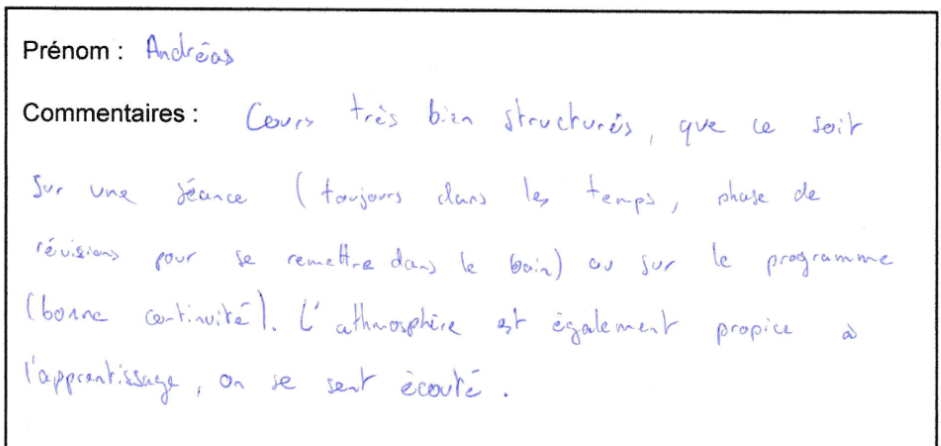 Prénom : Andréas
Commentaires : Cours très bien structurés, que ce soit
sur une séance (toujours dans les temps, phase de
révisions pour se remettre dans le bain) ou sur le programme
(bonne continuité). L'athmosphère est également propice à
l'apprentissage, on se sent écouté.